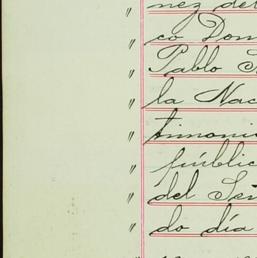 " nez del
" co Dom
" Pablo S
" la Nac
" timonio
" públic
" del Señ
" do día